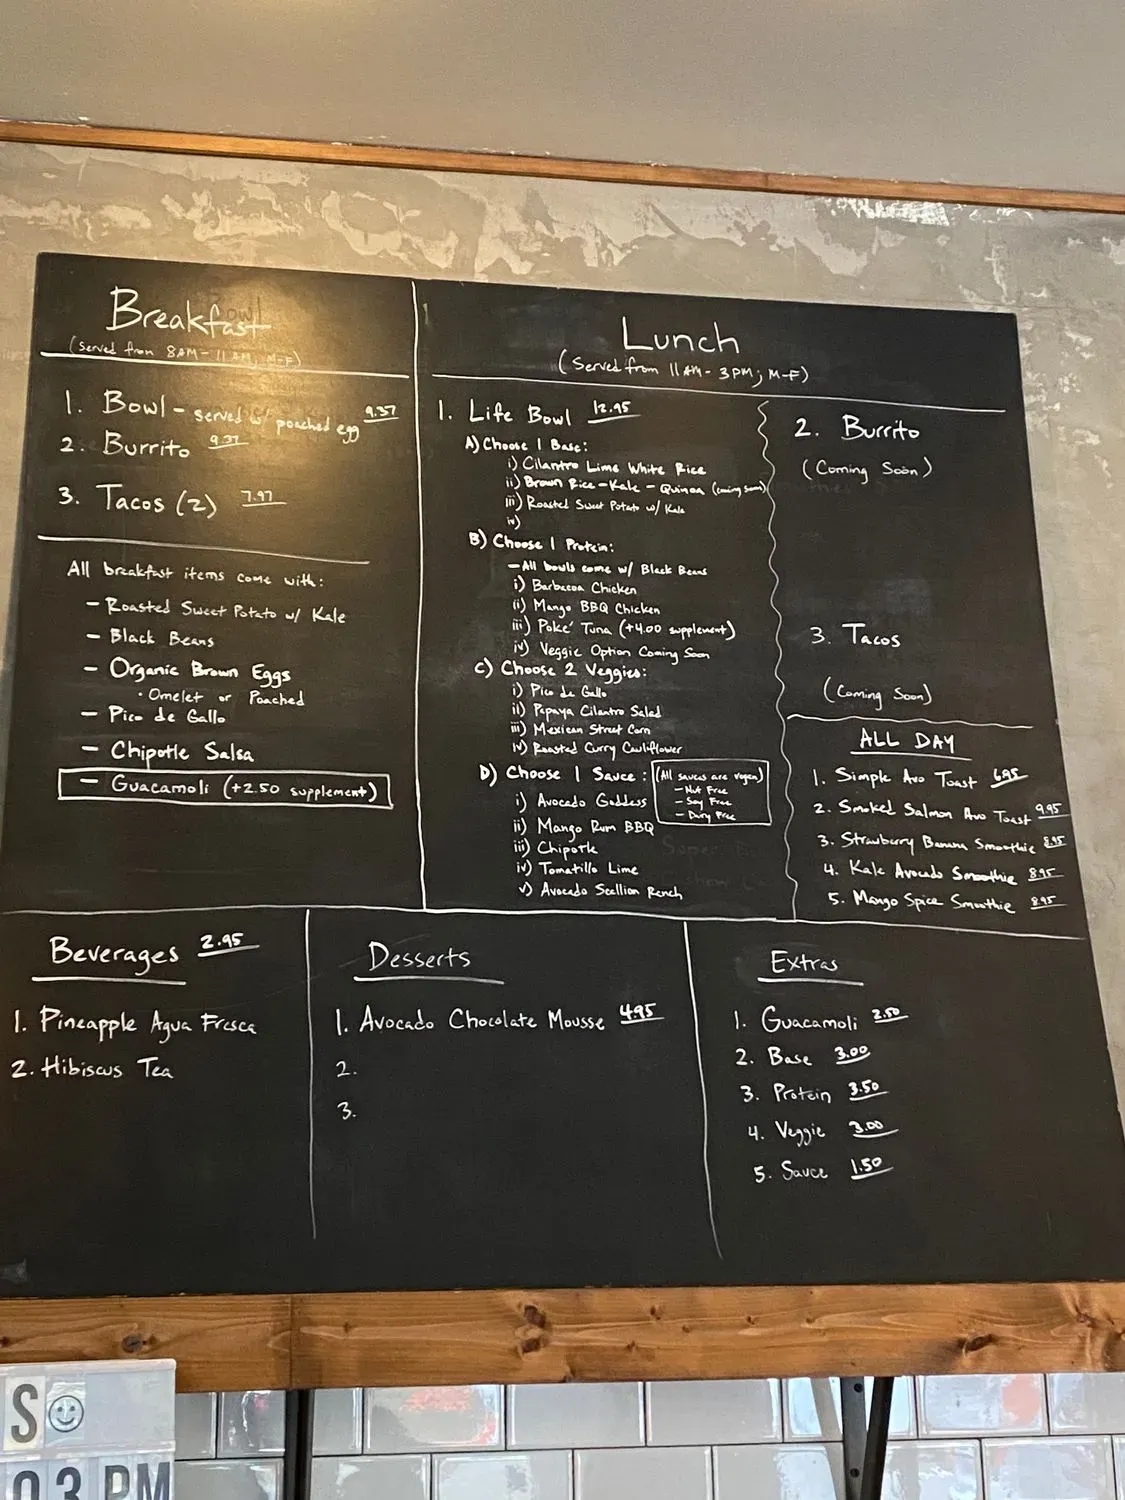 Breakfast
(Served from 8AM-11AM; M-F)
1. Bowl - served w/ poached egg 9.37
2. Burrito 9.37
3. Tacos (2) 7.97
All breakfast items come with:
- Roasted Sweet Potato w/ Kale
- Black Beans
- Organic Brown Eggs
• Omelet or Poached
- Pico de Gallo
- Chipotle Salsa
- Guacamoli (+2.50 supplement)
Lunch
(Served from 11AM-3PM; M-F)
1. Life Bowl 12.95
A) Choose 1 Base:
i) Cilantro Lime White Rice
ii) Brown Rice-Kale-Quinoa (coming soon)
iii) Roasted Sweet Potato w/ Kale
iv)
B) Choose 1 Protein:
- All bowls come w/ Black Beans
i) Barbacoa Chicken
ii) Mango BBQ Chicken
iii) Poke' Tuna (+4.00 supplement)
iv) Veggie Option Coming Soon
C) Choose 2 Veggies:
i) Pico de Gallo
ii) Papaya Cilantro Salad
iii) Mexican Street Corn
iv) Roasted Curry Cauliflower
D) Choose 1 Sauce:
(All sauces are vegan)
- Nut Free
- Soy Free
- Dairy Free
i) Avocado Goddess
ii) Mango Rum BBQ
iii) Chipotle
iv) Tomatillo Lime
v) Avocado Scallion Ranch
2. Burrito
(Coming Soon)
3. Tacos
(Coming Soon)
ALL DAY
1. Simple Avo Toast 6.95
2. Smoked Salmon Avo Toast 9.95
3. Strawberry Banana Smoothie 8.95
4. Kale Avocado Smoothie 8.95
5. Mango Spice Smoothie 8.95
Beverages 2.95
1. Pineapple Agua Fresca
2. Hibiscus Tea
Desserts
1. Avocado Chocolate Mousse 4.95
2.
3.
Extras
1. Guacamoli 2.50
2. Base 3.00
3. Protein 3.50
4. Veggie 3.00
5. Sauce 1.50
S
03 PM